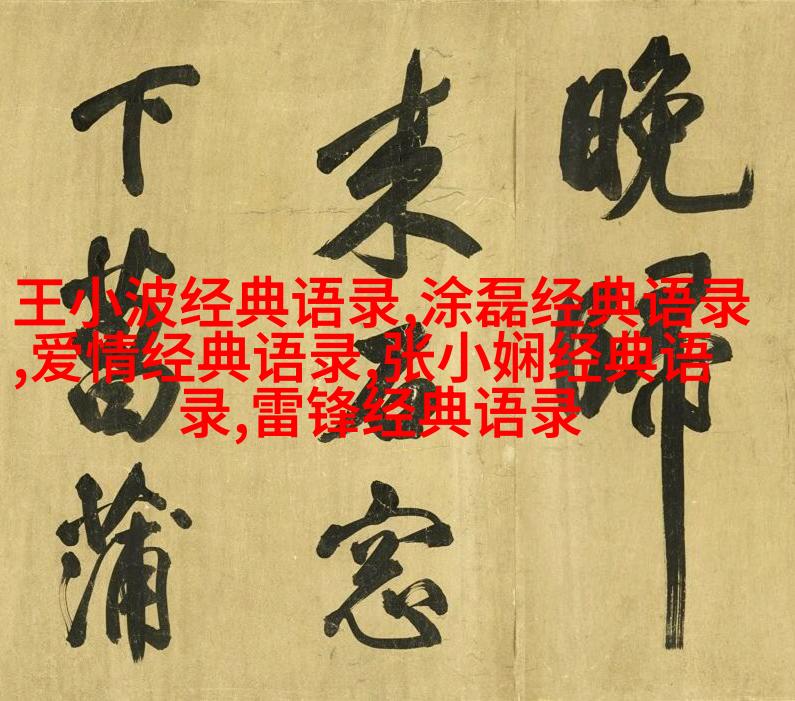 王小波经典语录,涂磊经典语录
,爱情经典语录,张小娴经典语
录,雷锋经典语录
晚歸
来窓
下菖蒲